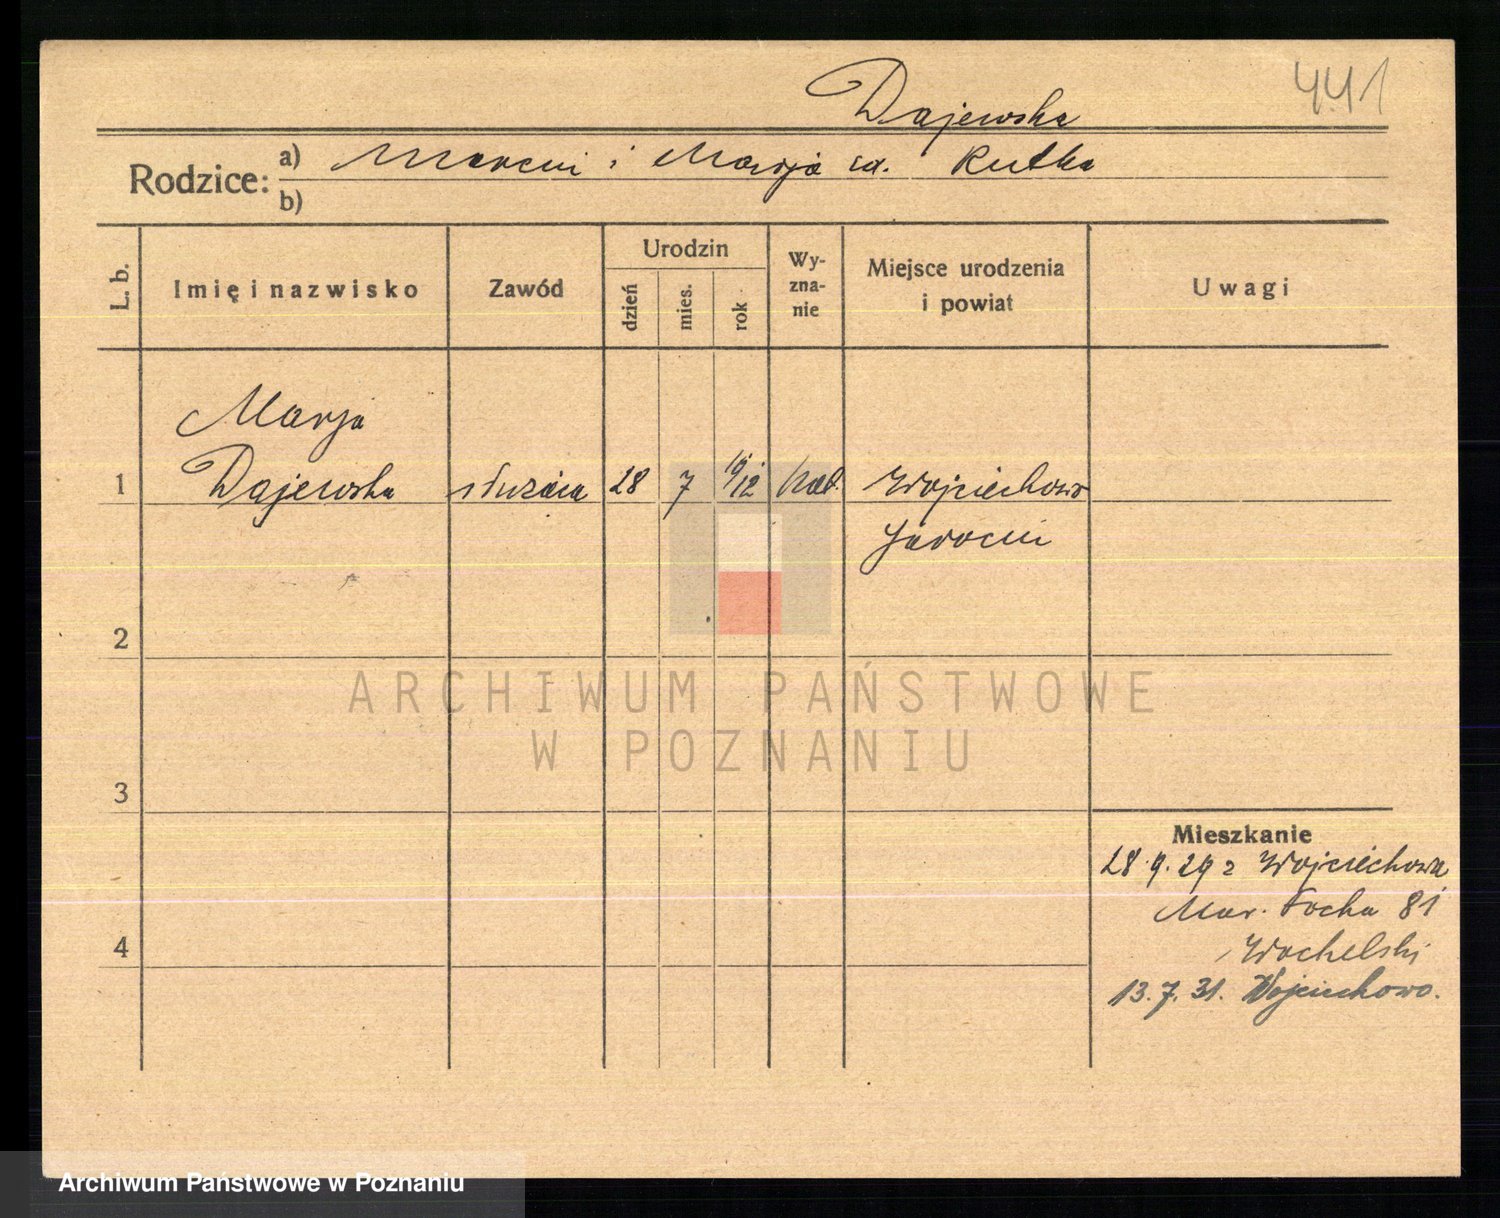 441
Dajewska
Rodzice: a) Marcin i Marja zd. Rutka
b)
L. b. Imię i nazwisko Zawód Urodzin dzień mies. rok Wyzna-nie Miejsce urodzenia i powiat Uwagi
Marja
1 Dajewska służąca 28 7 1912 kat. Wojciechowo
Jarocin
2
ARCHIWUM PAŃSTWOWE
W POZNANIU
3
Mieszkanie
28.9.29 z Wojciechowa
Mar. Focha 81
4 Wachelski
13.7.31. Wojciechowo.
Archiwum Państwowe w Poznaniu